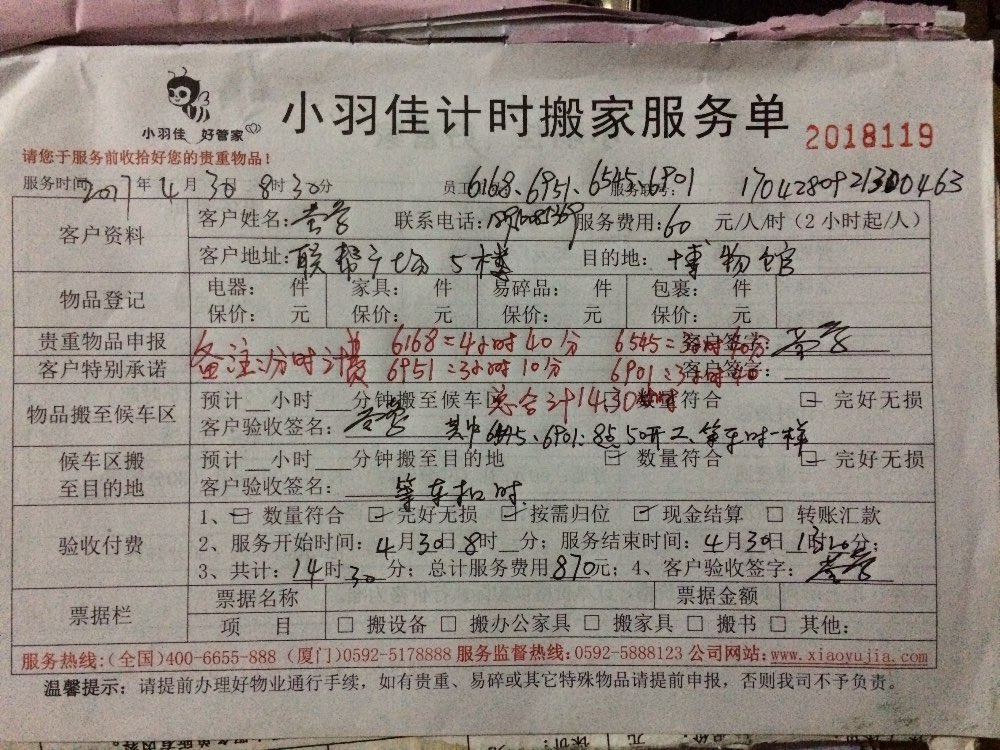 小羽佳 好管家
小羽佳计时搬家服务单
2018119
请您于服务前收拾好您的贵重物品！
服务时间 2017年4月30日8时30分 员工 6168、6951、6545、6901 170428092130463
客户资料 客户姓名: 联系电话: 服务费用:60 元/人/时（2小时起/人）
客户地址: 联帮广场5楼 目的地: 博物馆
物品登记 电器: 件 家具: 件 易碎品: 件 包裹: 件
保价: 元 保价: 元 保价: 元 保价: 元
贵重物品申报 备注:分时计费 6168=4小时40分 6545=3小时 客户签名:
客户特别承诺 6951=3小时10分 6901=3小时 客户签名:
物品搬至候车区 预计 小时 分钟搬至候车区 总合计14.30 数量符合 完好无损
客户验收签名: 其中6545、6901:8点50开工、等车时一样
候车区搬至目的地 预计 小时 分钟搬至目的地 数量符合 完好无损
客户验收签名: 等车扣时
验收付费 1、数量符合 完好无损 按需归位 现金结算 转账汇款
2、服务开始时间: 4月30日8时 分; 服务结束时间: 4月30日 时 分;
3、共计: 14时30分; 总计服务费用870元; 4、客户验收签字:
票据栏 票据名称 票据金额
项 目 搬设备 搬办公家具 搬家具 搬书 其他:
服务热线:(全国)400-6655-888 (厦门)0592-5178888 服务监督热线:0592-5888123 公司网站:www.xiaoyujia.com
温馨提示: 请提前办理好物业通行手续，如有贵重、易碎或其它特殊物品请提前申报，否则我司不予负责。